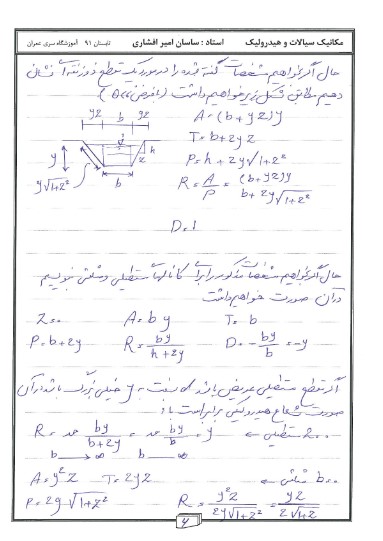 مکانیک سیالات و هیدرولیک استاد : ساسان امیر افشاری تابستان ۹۱ آموزشگاه سری عمران
حال اگر بخواهیم مشخصات گفته شده را در مورد یک مقطع ذوزنقه‌ای نشان
دهیم مطابق شکل زیر خواهیم داشت (با فرض
A=(b+yz)y
yz b yz
T=b+2yz
y h z
P=h+2y√1+z²
y√1+z²
b
R=A/P=(b+yz)y/b+2y√1+z²
D=1
حال اگر بخواهیم مشخصات مذکور را برای کانالهای مستطیلی و مثلثی بنویسیم
در آن صورت خواهیم داشت
z=0 A=by T=b
P=b+2y R=by/h+2y D=by/b=y
اگر مقطع مستطیلی عریض باشد نسبت به y خیلی بزرگ باشد در آن
صورت شعاع هیدرولیکی برابر است با :
R= حد by/b+2y = حد by/b = y ← مستطیلی z=0
b→∞ b→∞
b=0 مثلثی ←
A=y²z T=2yz
P=2y√1+z² R=y²z/2y√1+z² = yz/2√1+z²
۷